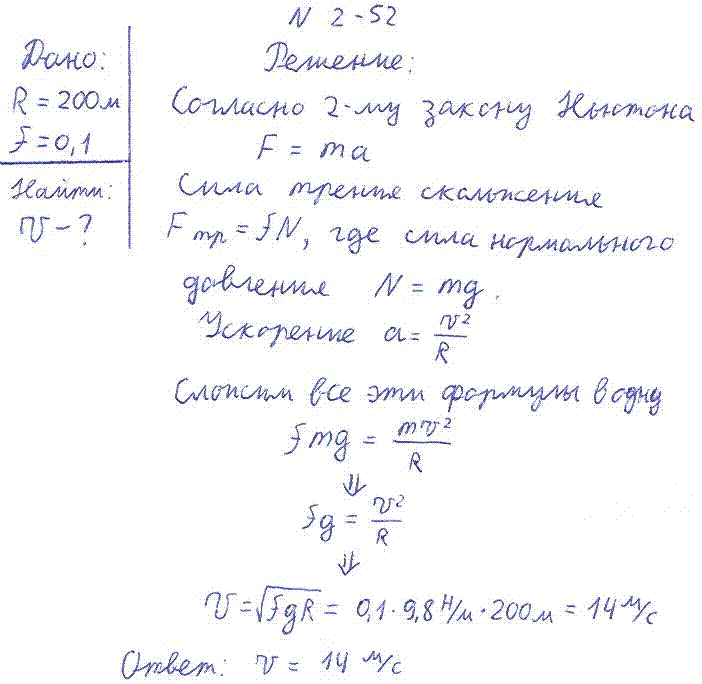 N 2-52
Дано:
R = 200 м
f = 0,1
Найти:
v - ?
Решение:
Согласно 2-му закону Ньютона
F = ma
Сила трения скольжения
Fтр = fN, где сила нормального
давления N = mg.
Ускорение a = v²/R
Сложим все эти формулы в одну
fmg = mv²/R
⇓
fg = v²/R
⇓
v = √fgR = 0,1 · 9,8 Н/м · 200 м = 14 м/с
Ответ: v = 14 м/с